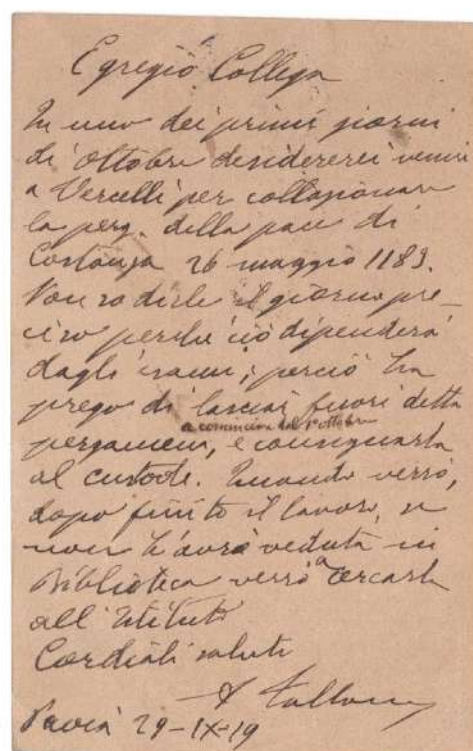 Egregio Collega
In uno dei primi giorni
di Ottobre desidererei venire
a Vercelli per collazionare
la perg. della pace di
Costanza 26 maggio 1183.
Non so dirle il giorno pre-
ciso perché ciò dipenderà
dagli esami; perciò La
prego di lasciar fuori detta
a cominciare dal 1º ottobre
pergamena, e consegnarla
al custode. Quando verrò,
dopo finito il lavoro, se
non L'avrò veduta in
Biblioteca verrò a cercarla
all'Istituto
Cordiali saluti
Pavia 29-IX-19